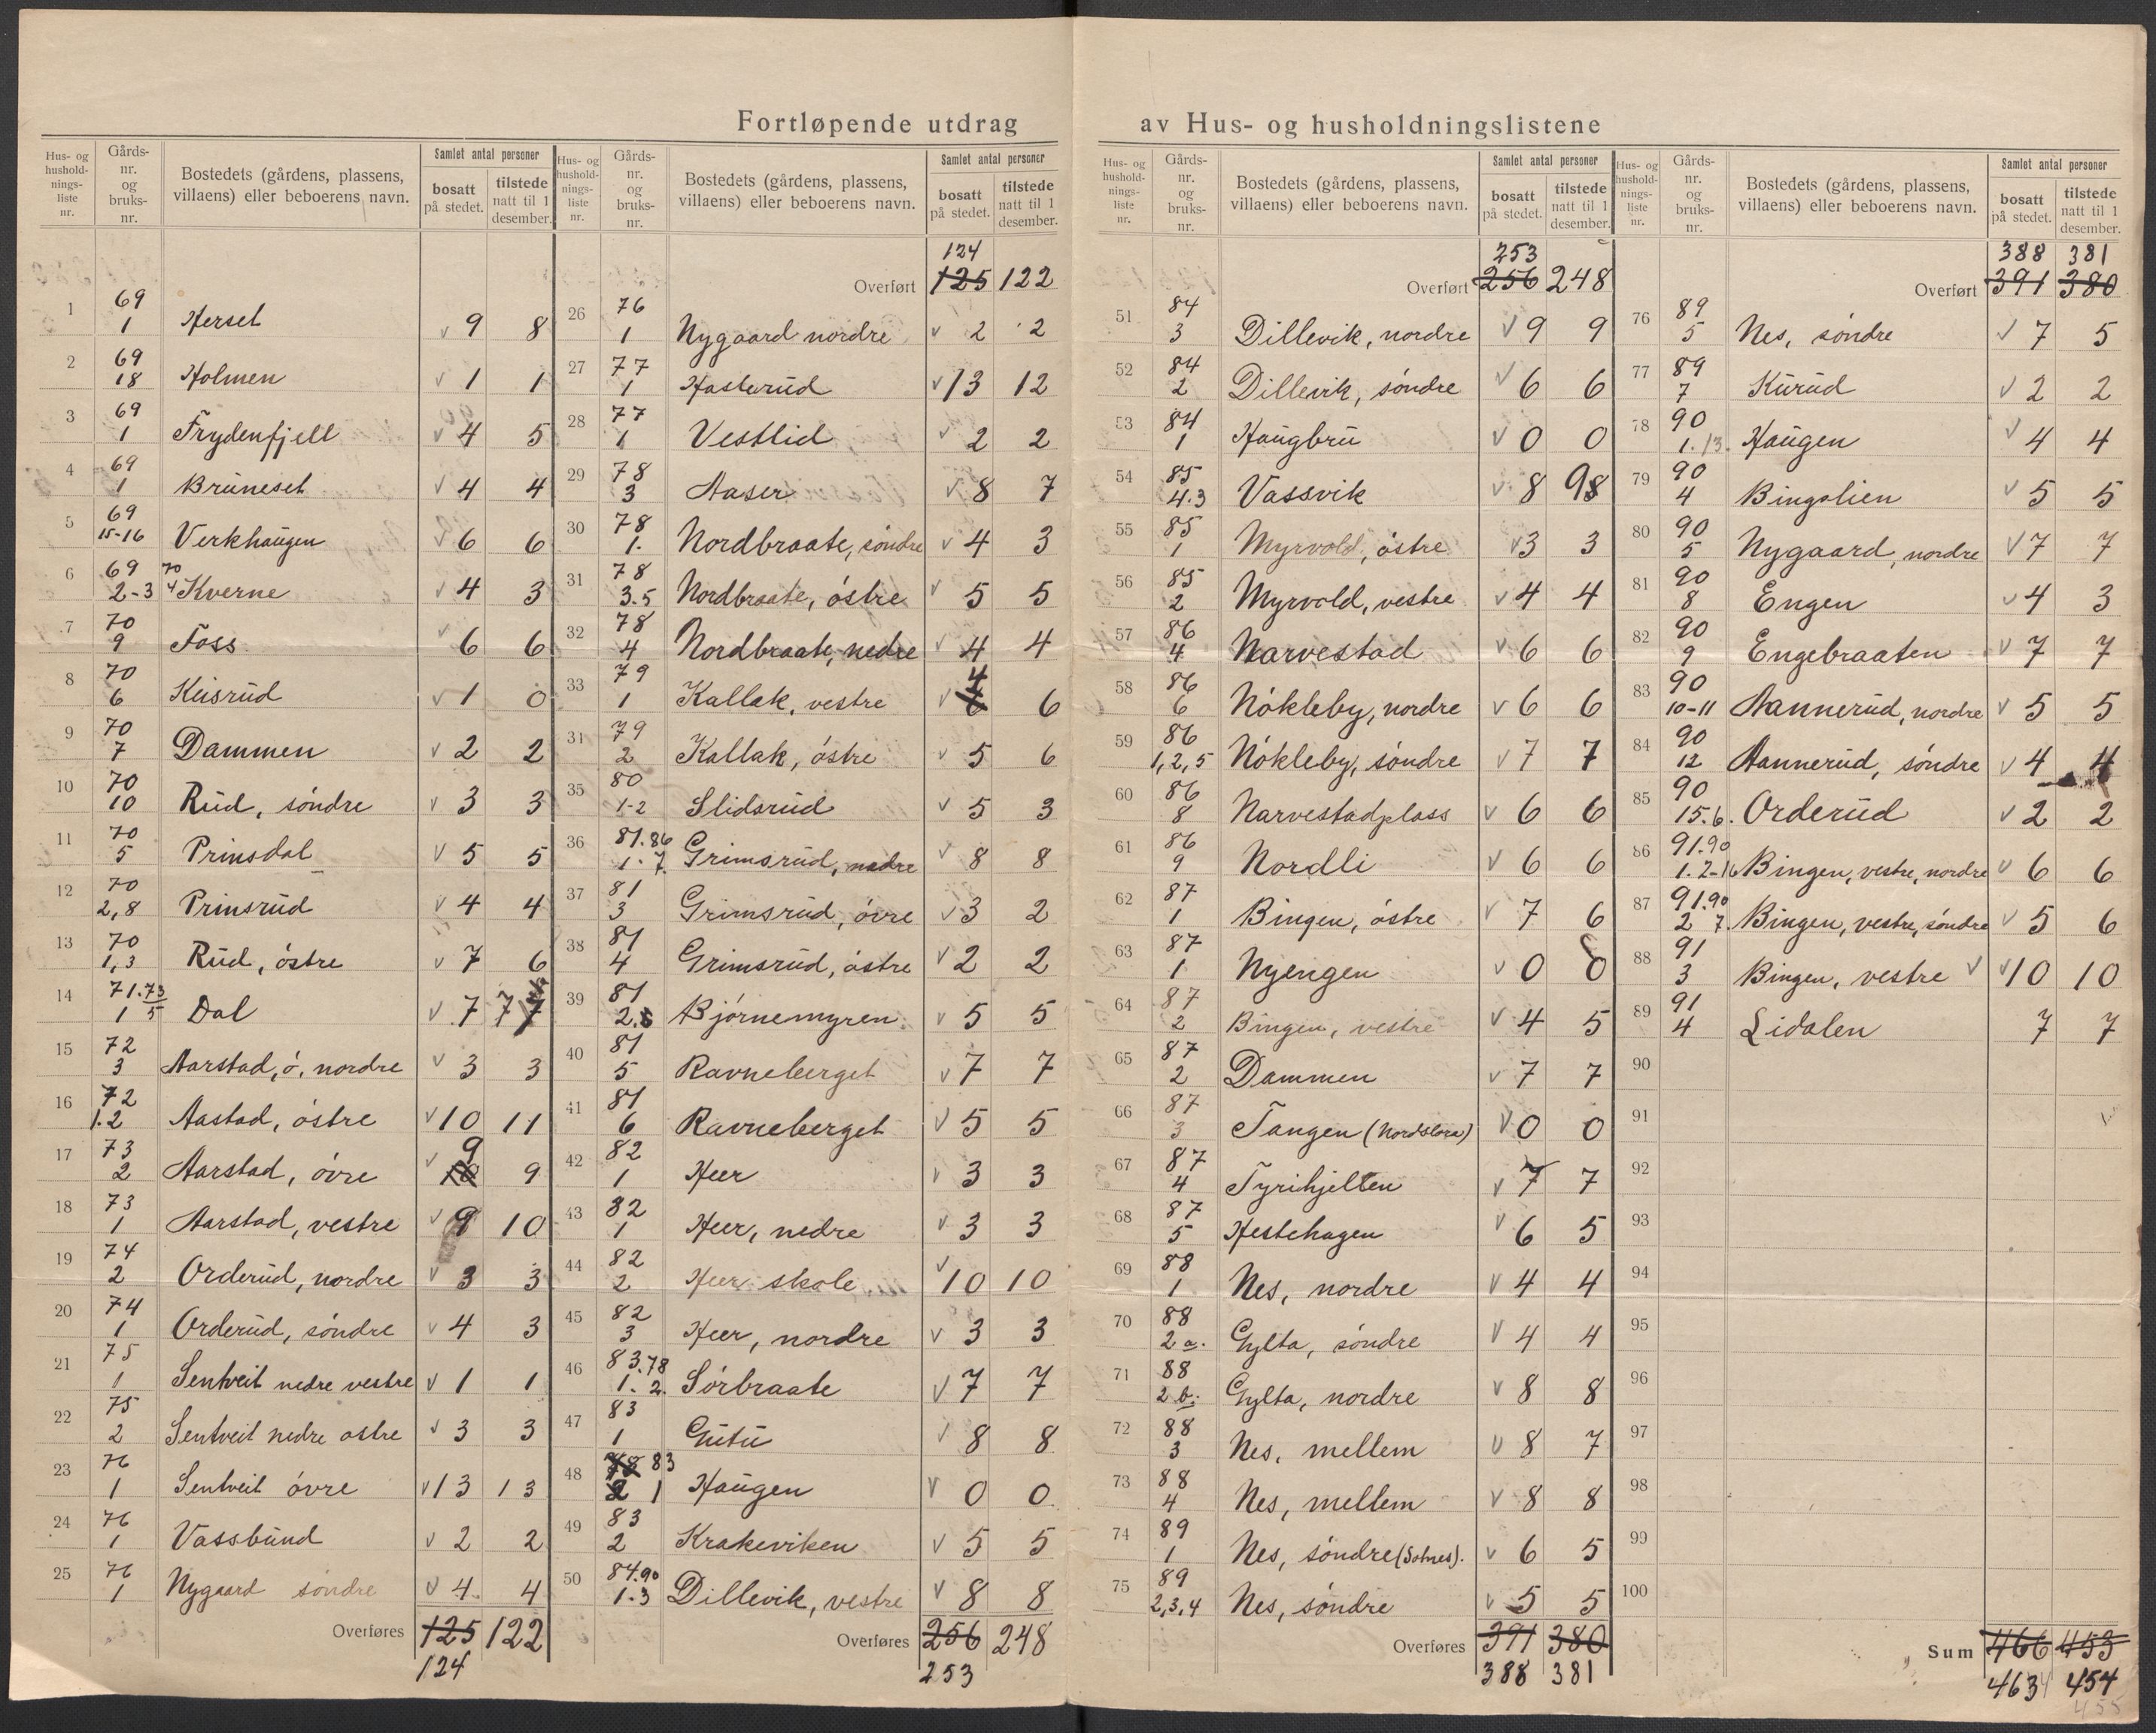 Fortløpende utdrag av Hus- og husholdningslistene
Hus- og hushold-nings-liste nr. Gårds-nr. og bruks-nr. Bostedets (gårdens, plassens, villaens) eller beboerens navn. Samlet antal personer bosatt på stedet. tilstede natt til 1 desember.
1 69 1 Herset 9 8
2 69 18 Holmen 1 1
3 69 1 Frydenfjell 4 5
4 69 1 Bruneset 4 4
5 69 15-16 Verkhaugen 6 6
6 69 2-3 70 4 Kverne 4 3
7 70 9 Foss 6 6
8 70 6 Keisrud 1 0
9 70 7 Dammen 2 2
10 70 10 Rud, söndre 3 3
11 70 5 Prinsdal 5 5
12 70 2,8 Prinsrud 4 4
13 70 1,3 Rud, östre 7 6
14 71.73 1 5 Dal 7 7
15 72 3 Aarstad, ö. nordre 3 3
16 72 1.2 Aastad, östre 10 11
17 73 2 Aarstad, övre 10 9 9
18 73 1 Aarstad, vestre 9 10
19 74 2 Orderud, nordre 3 3
20 74 1 Orderud, söndre 4 3
21 75 1 Sentveit nedre vestre 1 1
22 75 2 Sentveit nedre østre 3 3
23 76 1 Sentveit övre 13 13
24 76 1 Vassbund 2 2
25 76 1 Nygaard söndre 4 4
Overføres 125 122
124
Hus- og hushold-nings-liste nr. Gårds-nr. og bruks-nr. Bostedets (gårdens, plassens, villaens) eller beboerens navn. Samlet antal personer bosatt på stedet. tilstede natt til 1 desember.
124
Overført 125 122
26 76 1 Nygaard nordre 2 2
27 77 1 Hasterud 13 12
28 77 1 Vestlid 2 2
29 78 3 Aaser 8 7
30 78 1. Nordbraate, söndre 4 3
31 78 3.5 Nordbraate, östre 5 5
32 78 4 Nordbraate, nedre 4 4
33 79 1 Kallak, vestre 4 6
34 79 2 Kallak, östre 5 6
35 80 1-2 Slidsrud 5 3
36 81.86 1. 7. Grimsrud, nedre 8 8
37 81 3 Grimsrud, övre 3 2
38 81 4 Grimsrud, östre 2 2
39 81 2. Björnemyren 5 5
40 81 5 Ravneberget 7 7
41 81 6 Ravneberget 5 5
42 82 1 Heer 3 3
43 82 1 Heer, nedre 3 3
44 82 2 Heer skole 10 10
45 82 3 Heer, nordre 3 3
46 83.78 1. 2. Sörbraate 7 7
47 83 1 Gutu 8 8
48 78 83 2 1 Haugen 0 0
49 83 2 Krakeviken 5 5
50 84.90 1.3 Dillevik, vestre 8 8
Overføres 256 248
253
Hus- og hushold-nings-liste nr. Gårds-nr. og bruks-nr. Bostedets (gårdens, plassens, villaens) eller beboerens navn. Samlet antal personer bosatt på stedet. tilstede natt til 1 desember.
253
Overført 256 248
51 84 3 Dillevik, nordre 9 9
52 84 2 Dillevik, söndre 6 6
53 84 1 Haugbru 0 0
54 85 4.3 Vassvik 8 9 8
55 85 1 Myrvold, östre 3 3
56 85 2 Myrvold, vestre 4 4
57 86 4 Narvestad 6 6
58 86 6 Nökleby, nordre 6 6
59 86 1,2,5 Nökleby, söndre 7 7
60 86 8 Narvestadplass 6 6
61 86 9 Nordli 6 6
62 87 1 Bingen, östre 7 6
63 87 1 Nyengen 0 0
64 87 2 Bingen, vestre 4 5
65 87 2 Dammen 7 7
66 87 3 Tangen (Nordstora) 0 0
67 87 4 Tyrihjellen 7 7
68 87 5 Hestehagen 6 5
69 88 1 Nes, nordre 4 4
70 88 2 a. Gylta, söndre 4 4
71 88 2 b. Gylta, nordre 8 8
72 88 3 Nes, mellem 8 7
73 88 4 Nes, mellem 8 8
74 89 1 Nes, söndre (Solnes). 6 5
75 89 2,3,4 Nes, söndre 5 5
Overføres 391 380
388 381
Hus- og hushold-nings-liste nr. Gårds-nr. og bruks-nr. Bostedets (gårdens, plassens, villaens) eller beboerens navn. Samlet antal personer bosatt på stedet. tilstede natt til 1 desember.
388 381
Overført 391 380
76 89 5 Nes, söndre 7 5
77 89 7 Kurud 2 2
78 90 1.13. Haugen 4 4
79 90 4 Bingslien 5 5
80 90 5 Nygaard, nordre 7 7
81 90 8 Engen 4 3
82 90 9 Engebraaten 7 7
83 90 10-11 Aannerud, nordre 5 5
84 90 12 Aannerud, söndre 4 4
85 90 15.6. Orderud 2 2
86 91.90 1. 2-16 Bingen, vestre, nordre 6 6
87 91.90 2 7. Bingen, vestre, söndre 5 6
88 91 3 Bingen, vestre 10 10
89 91 4 Lidalen 7 7
90
91
92
93
94
95
96
97
98
99
100
Sum 466 453
463 454
455